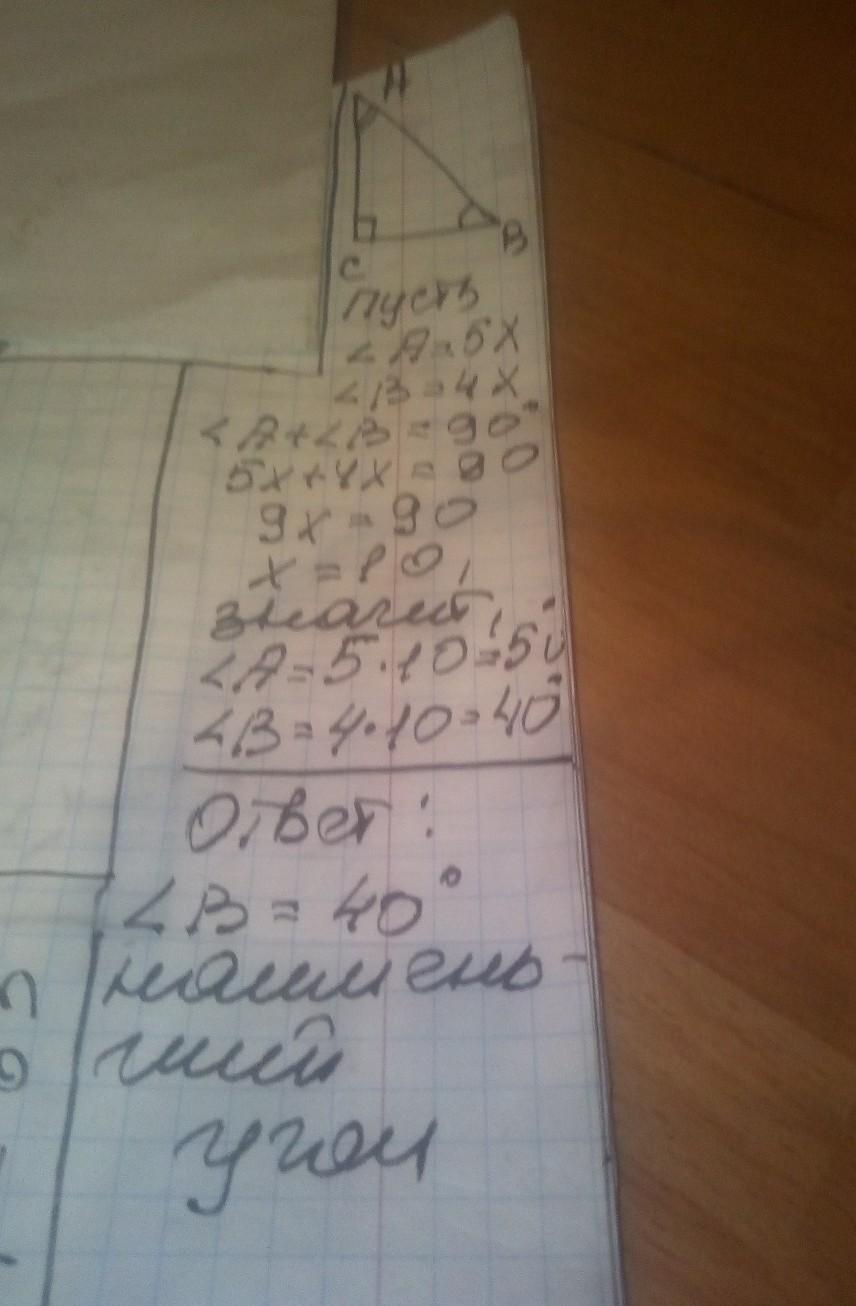 A
C
B
Пусть
∠A=5x
∠B=4x
∠A+∠B=90°
5x+4x=90
9x=90
x=10,
значит,
∠A=5·10=50°
∠B=4·10=40°
Ответ:
∠B=40°
наимень-
ший
угол